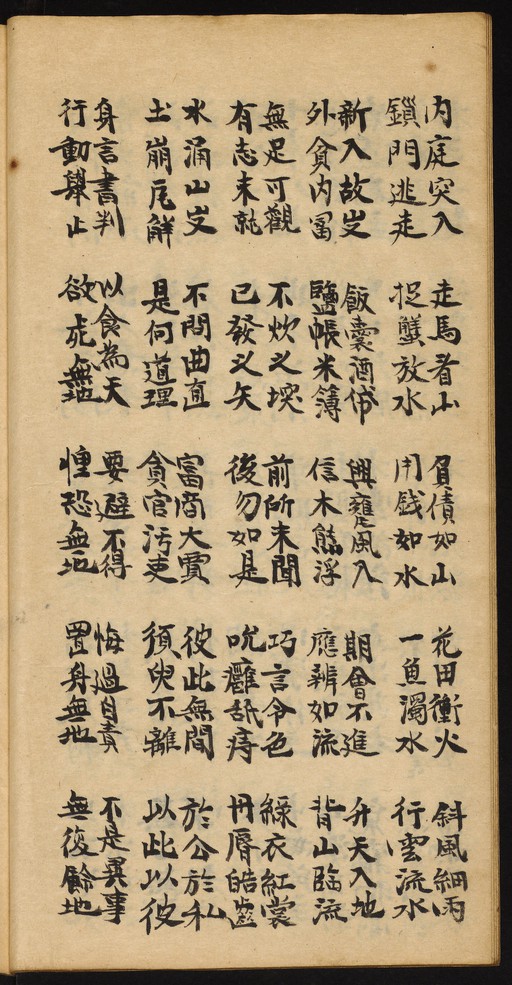 内庭突入 走馬看山 負債如山 花田衝火 斜風細雨
鎖門逃走 捉蟹放水 用錢如水 一魚濁水 行雲流水
新入故出 飯囊酒帒 興甕風入 期會不進 升天入地
外貧内冨 鹽帳米簿 信木熊浮 應辨如流 背山臨流
無足可觀 不炊之堗 前所未聞 巧言令色 綠衣紅裳
有志未就 已發之矢 後勿如是 吮癰舐痔 丹脣皓齒
水涌山出 不問曲直 富商大賈 彼此無間 於公於私
土崩瓦解 是何道理 貪官汚吏 須臾不離 以此以彼
身言書判 以食為天 要避不得 悔過自責 不是異事
行動舉止 欲死無地 惶恐無地 置身無地 無復餘地